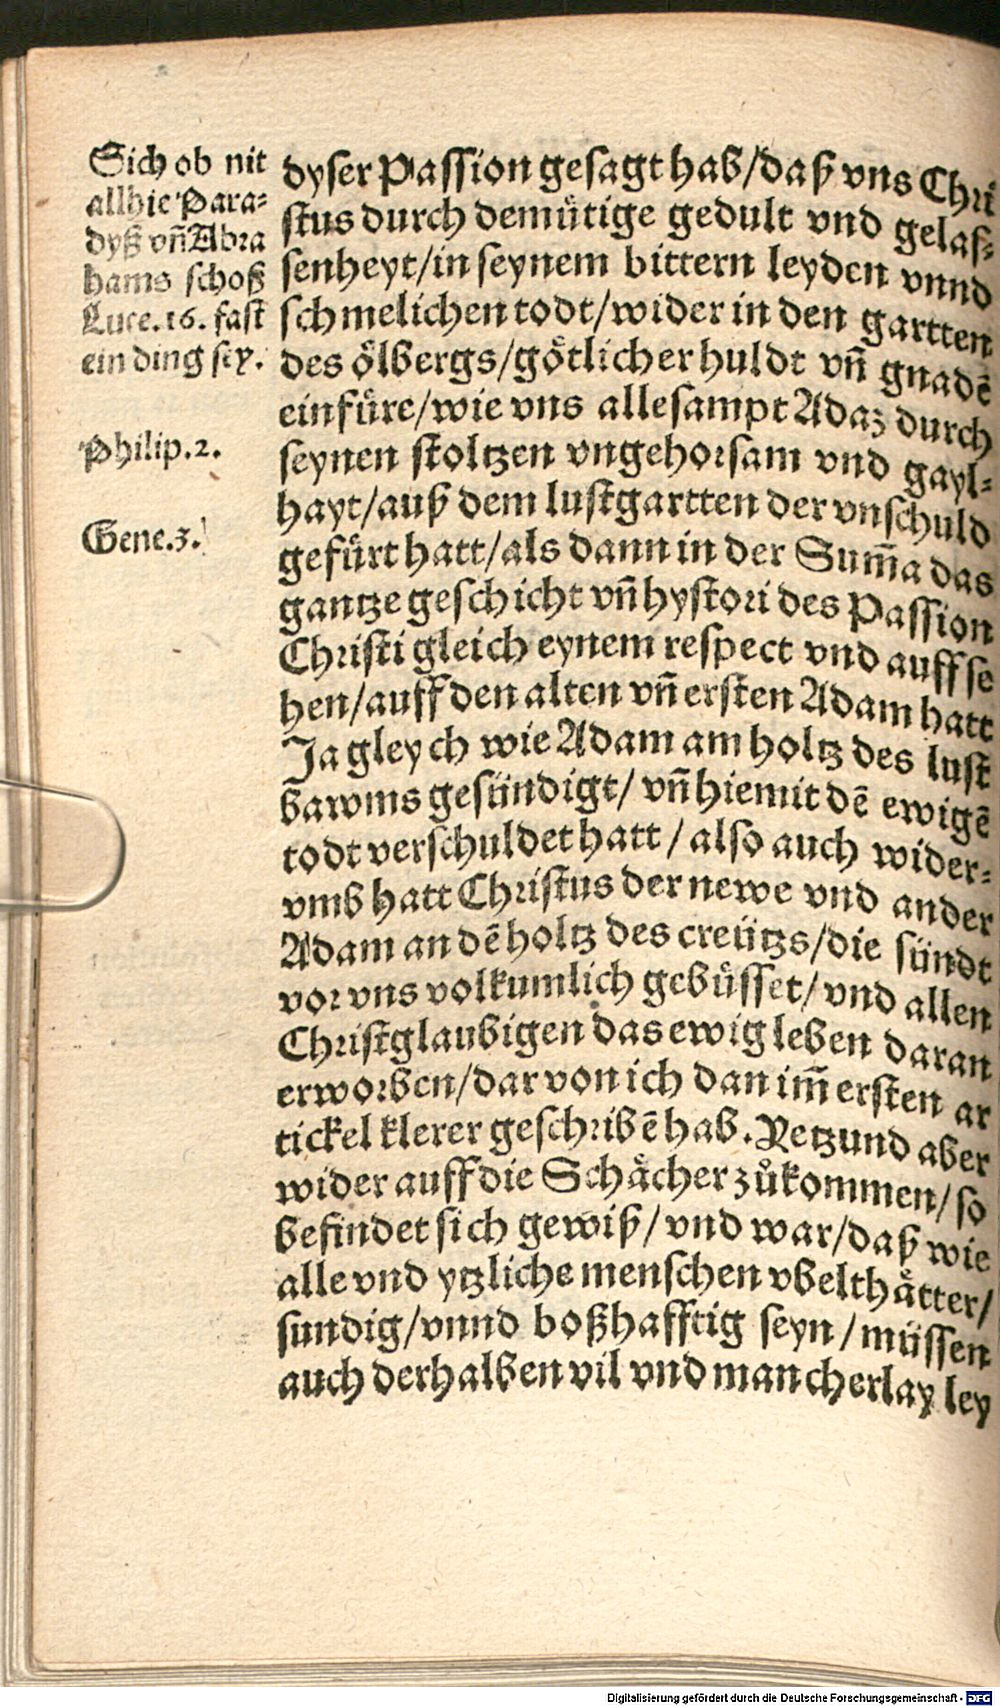 Sich ob nit
allhie Para⸗
dyß vñ Abra
hams schoß
Luce. 16. fast
ein ding sey.
Philip. 2.
Gene. 3.
dyser Passion gesagt hab/daß vns Chri
stus durch demuͤtige gedult vnd gelas⸗
senheyt/in seynem bittern leyden vnnd
schmelichen todt/wider in den gartten
des oͤlbergs/goͤtlicher huldt vñ gnadē
einfuͤre/wie vns allesampt Adaz durch
seynen stoltzen vngehorsam vnd gayl⸗
hayt/auß dem lustgartten der vnschuld
gefuͤrt hatt/als dann in der Sum̃a das
gantze geschicht vñ hystori des Passion
Christi gleich eynem respect vnd auffse
hen/auff den alten vñ ersten Adam hatt
Ja gleych wie Adam am holtz des lust
bawms gesündigt/ vñ hiemit dē ewigē
todt verschuldet hatt / also auch wider⸗
vmb hatt Christus der newe vnd ander
Adam an dē holtz des creützs/die sündt
vor vns volkumlich gebuͤsset/ vnd allen
Christglaubigen das ewig leben daran
erworben/dar von ich dan im̃ ersten ar
tickel klerer geschribē hab. Yetzund aber
wider auff die Schaͤcher zuͦkommen/ so
befindet sich gewiß/ vnd war/daß wie
alle vnd ytzliche menschen vbelthaͤtter/
sundig/vnnd boßhafftig seyn / müssen
auch derhalben vil vnd mancherlay ley
Digitalisierung gefördert durch die Deutsche Forschungsgemeinschaft - DFG